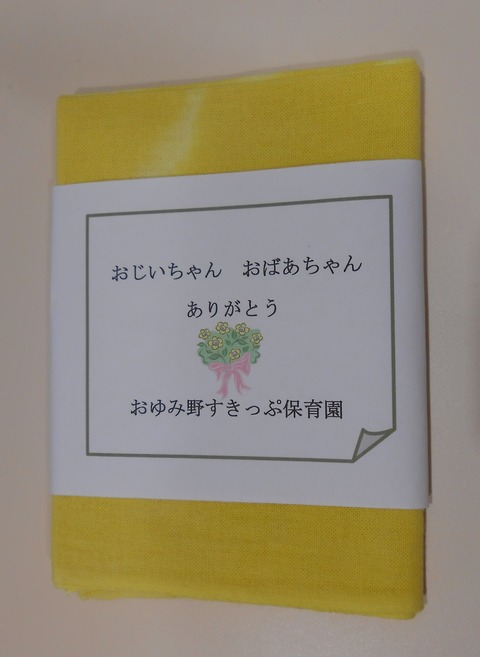 おじいちゃん　おばあちゃん
ありがとう
おゆみ野すきっぷ保育園